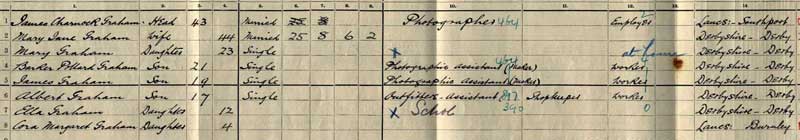 1. 2. 3. 4. 5. 6. 7. 8. 9. 10. 11. 12. 13. 14.
James Charnock Graham Head 43 Married 25 8 Photographer 464 Employer Lancs: - Southport
2 Mary Jane Graham Wife 44 Married 25 8 6 2 Derbyshire - Derby
3 Mary Graham Daughter 23 Single x at home Derbyshire - Derby
4 Graham Son 21 Single Photographic assistant 464 worker Derbyshire - Derby
5 James Graham Son 19 Single Photographic assistant worker Derbyshire - Derby
6 Albert Graham Son 17 Single Outfitters - assistant Shopkeeper worker Derbyshire - Derby
7 Ella Graham Daughter 12 x School 390 0 Derbyshire - Derby
8 Cora Margaret Graham Daughter 4 Lancs: Burnley